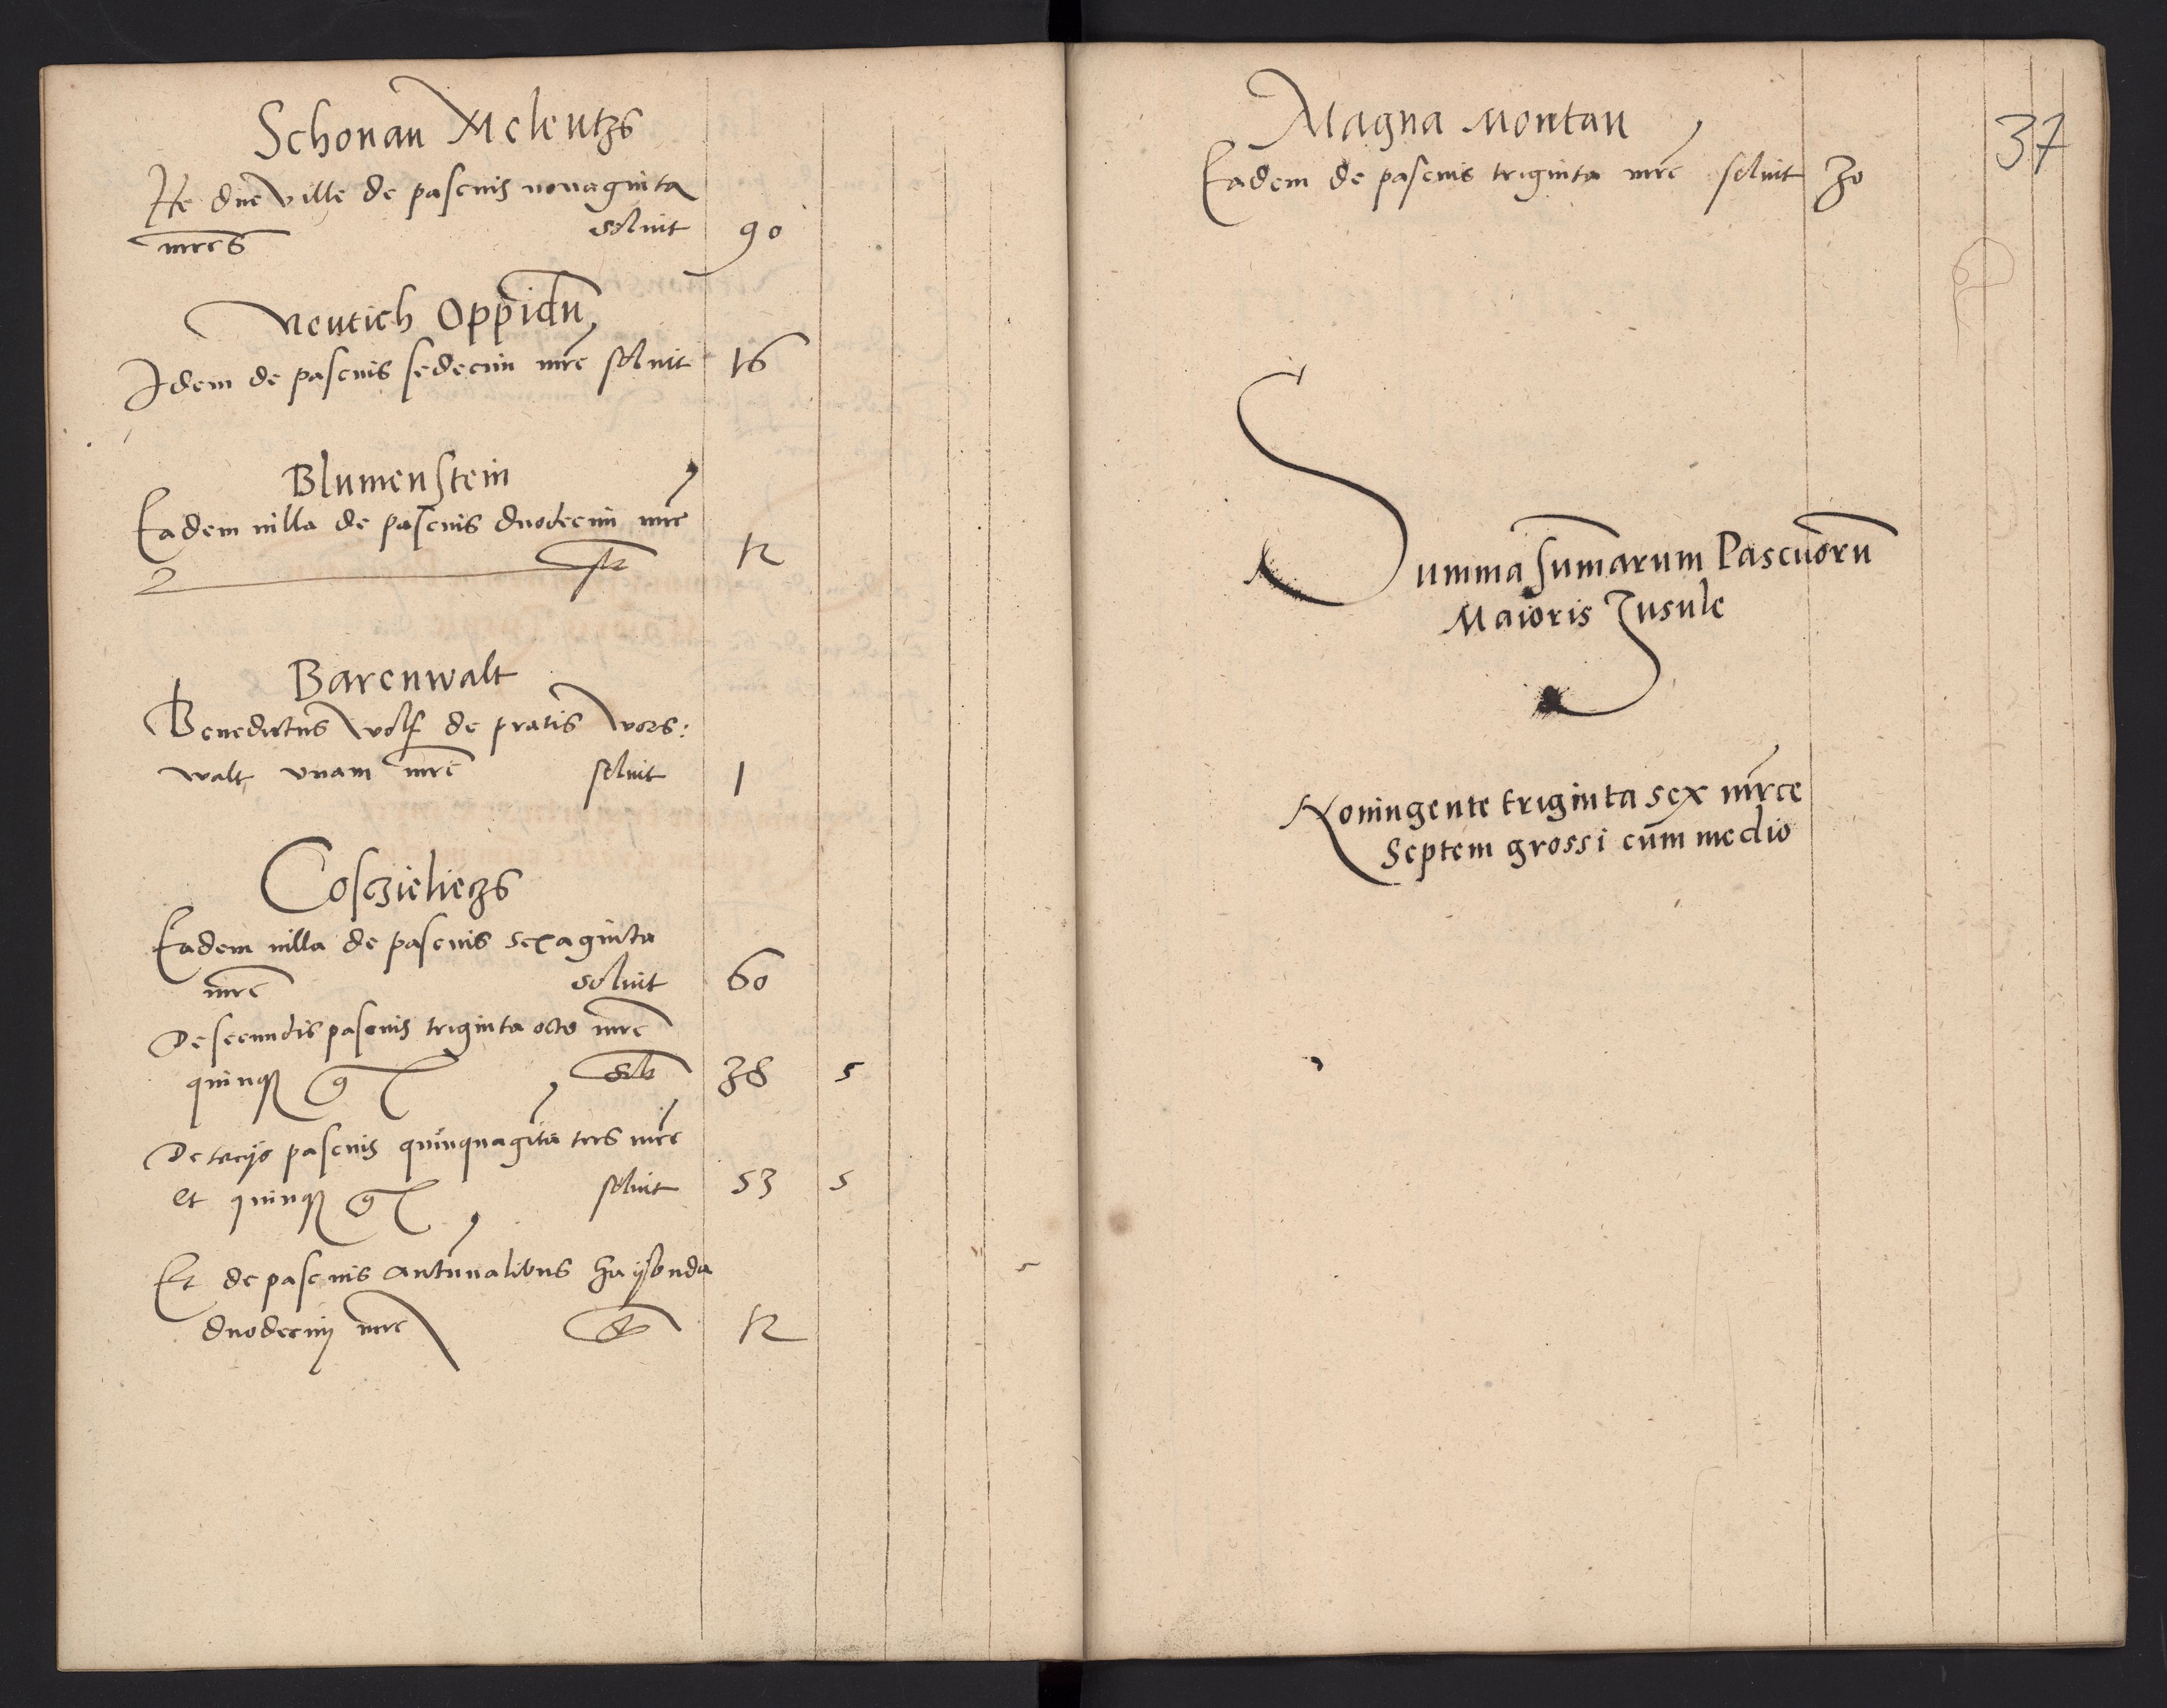 Schonau Melentzs
He due ville de pascuis nonaginta
mrcs soluit 90
Neutich Oppidu
Idem de pascuis sedecim mrc soluit 16
Blumenstein
Eadem villa de pascuis duodecim mrc
12
Barenwalt
Benedictus Wolf de pratis Vors:
walt unam mrc soluit 1
Cosczielietzs
Eadem villa de pascuis sexaginta
mrc soluit 60
De secundis pascuis triginta octo mrc
quinqz g 38 5
De tercijs pascuis quinquaginta tres mrc
et quinqz g soluit 53 5
Et de pascuis autunalibus
duodecim mrc 12
Magna Montau
37
Eadem de pascuis triginta mrc soluit 30
Summa sumarum Pascuoru
Maioris Insule
Noningente triginta sex mrce
Septem grossi cum medio